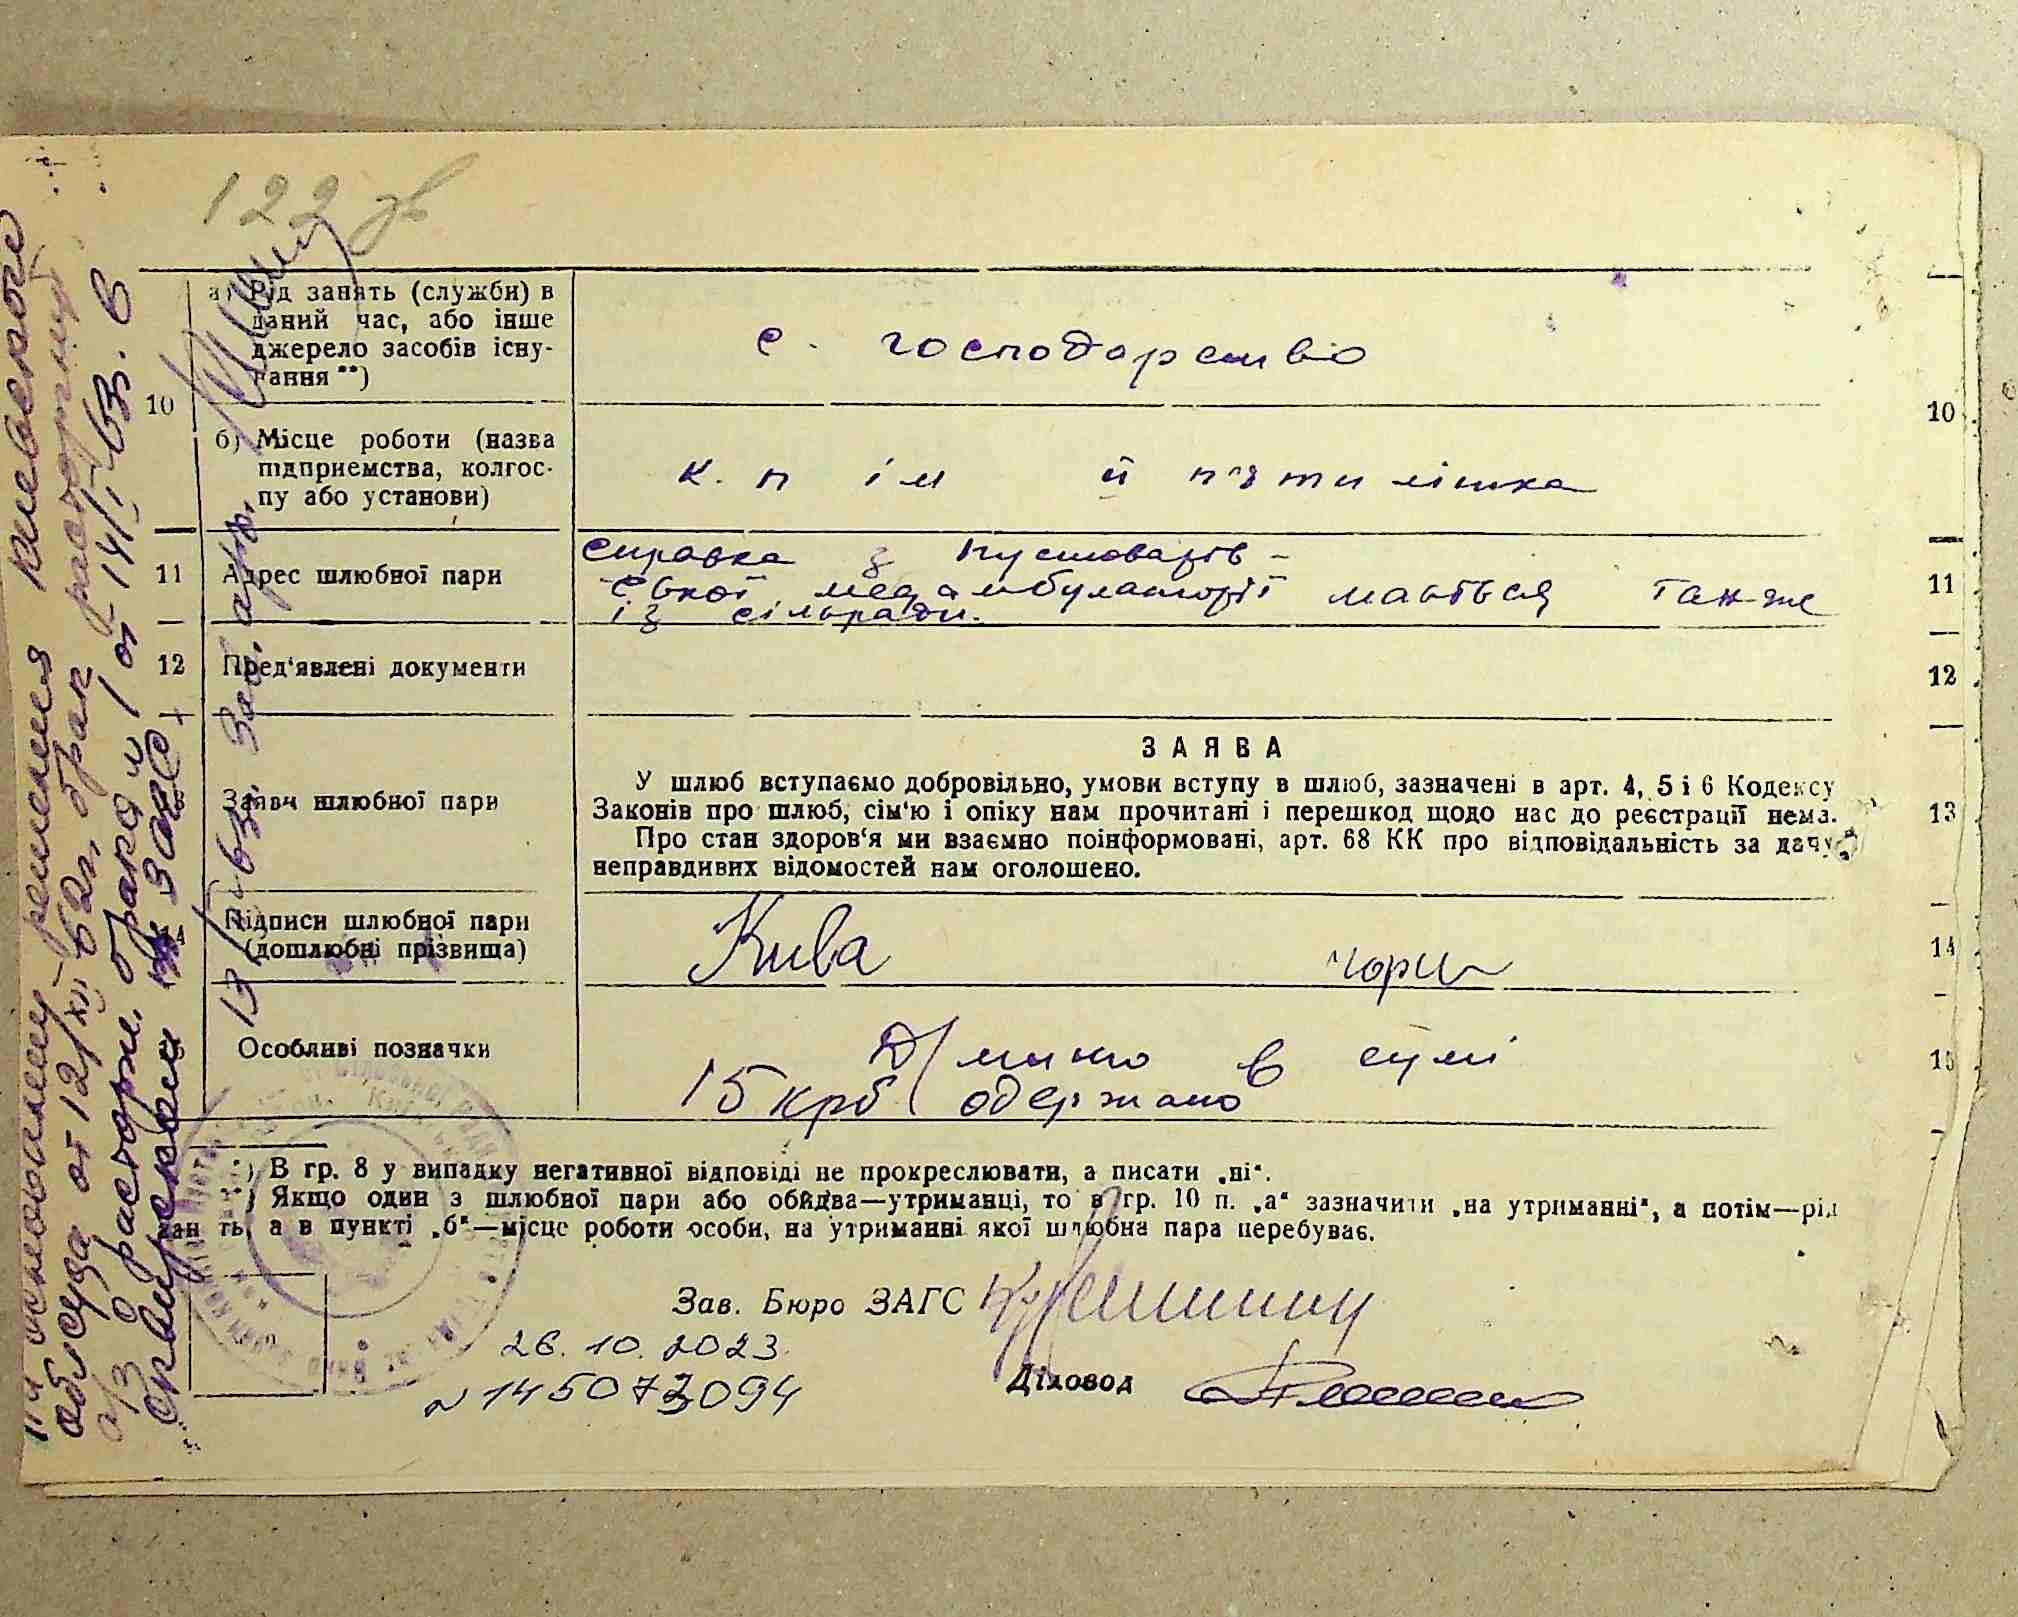 122 зв
10
а) Рід занять (служби) в
даний час, або інше
джерело засобів існу-
вання**)
с. господарство
10
б) Місце роботи (назва
підприємства, колгос-
пу або установи)
к. п ім й п'ятилітка
11
Адрес шлюбної пари
справка з Пустоварів-
ської медамбулаторії мається также
із сільради.
11
12
Пред'явлені документи
12
Заяви шлюбної пари
ЗАЯВА
У шлюб вступаємо добровільно, умови вступу в шлюб, зазначені в арт. 4, 5 і 6 Кодексу
Законів про шлюб, сім'ю і опіку нам прочитані і перешкод щодо нас до реєстрації нема.
Про стан здоров'я ми взаємно поінформовані, арт. 68 КК про відповідальність за дачу
неправдивих відомостей нам оголошено.
13
14
Підписи шлюбної пари
(дошлюбні прізвища)
Кива
14
Особливі позначки
мито в сумі
15 крб одержано
15
*) В гр. 8 у випадку негативної відповіді не прокреслювати, а писати „ні“.
Якщо один з шлюбної пари або обидва—утриманці, то в гр. 10 п. „а“ зазначити „на утриманні“, а потім—рід
занять, а в пункті „б“—місце роботи особи, на утриманні якої шлюбна пара перебуває.
Зав. Бюро ЗАГС
26.10.2023
N 145073094
Діловод
На основании решения Киевского
облсуда от 12/XII-62г. брак расторгнут
а/з о расторж. брака № 1 от 14/I-63. в
Сквирском ЗАГС
13/I-63г. Зав.